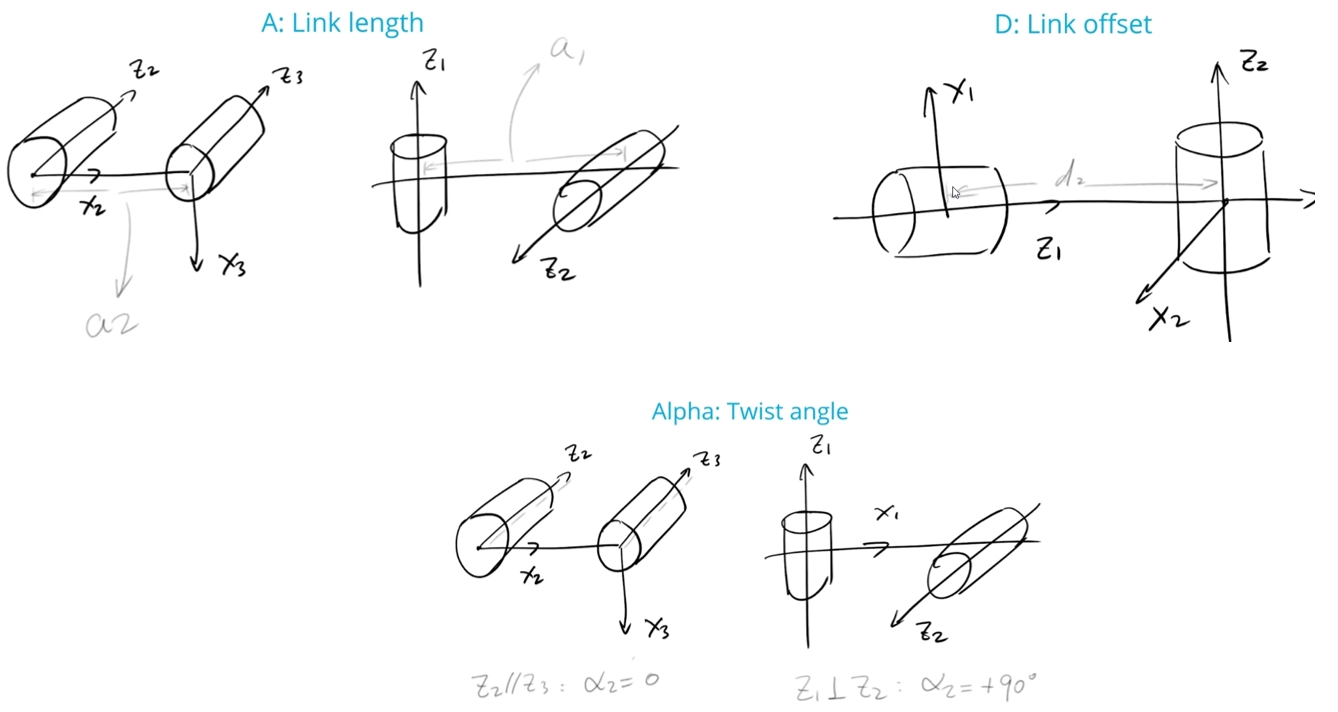 A: Link length
Z₂
Z₃
X₂
X₃
a2
Z₁
a₁
Z₂
D: Link offset
X₁
Z₂
d₂
Z₁
X₂
Alpha: Twist angle
Z₂
Z₃
X₂
X₃
Z₂//Z₃: α₂= 0
Z₁
X₁
Z₂
Z₁⊥Z₂: α₂=+90°